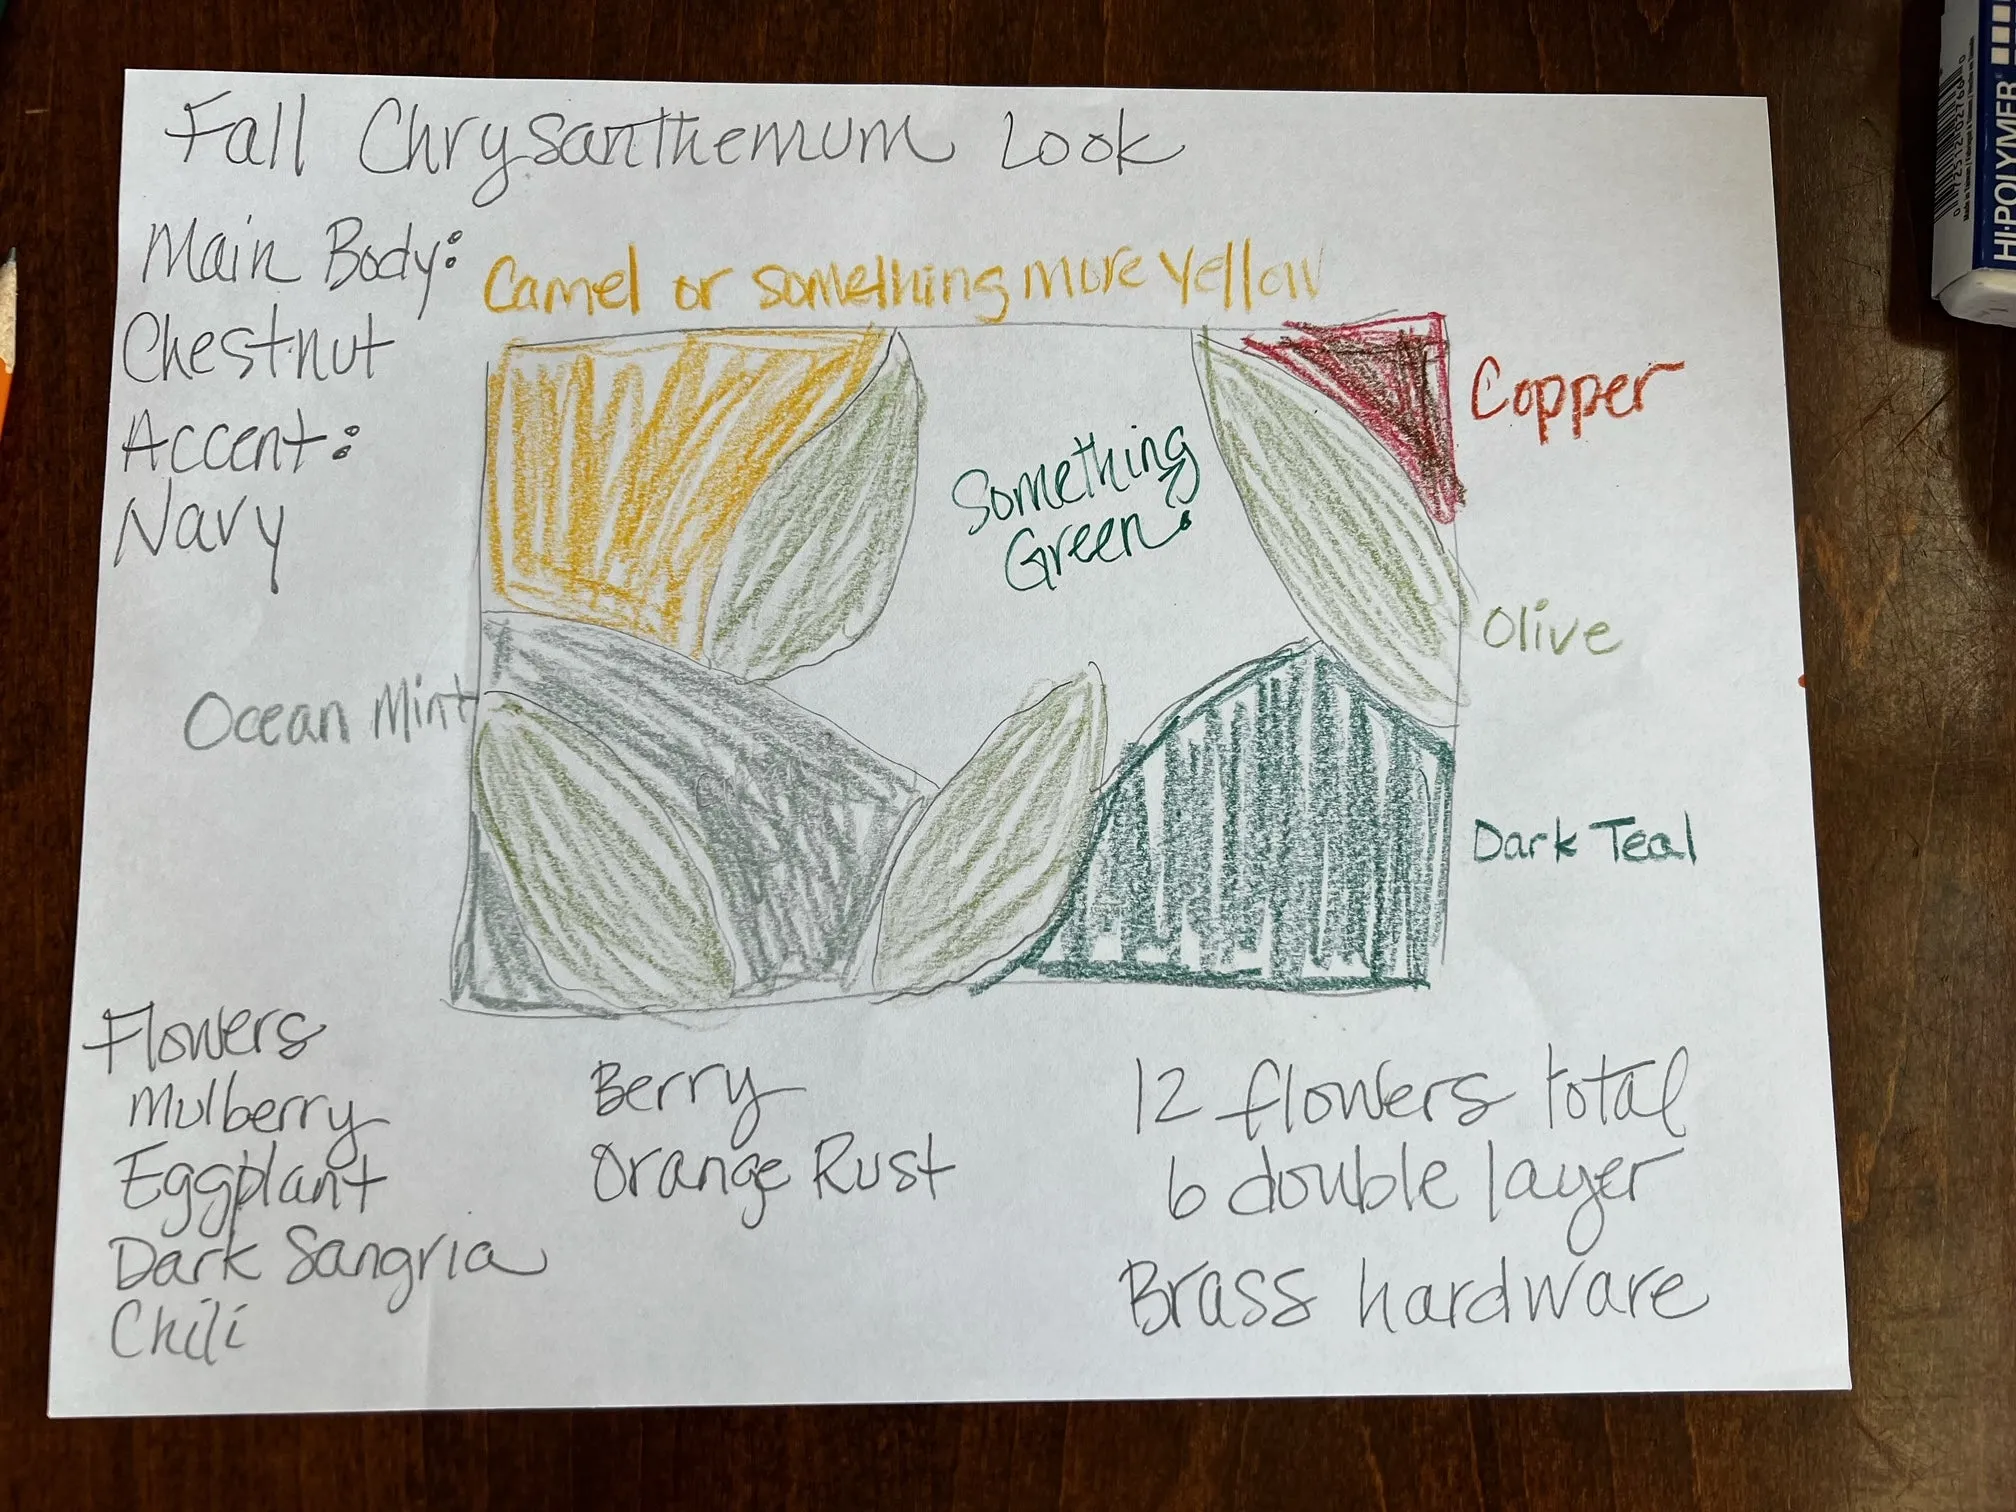 Fall Chrysanthemum Look
Main Body:
Chestnut
Accent:
Navy
Camel or something more yellow
Copper
Something
Green?
Olive
Ocean Mint
Dark Teal
Flowers
Mulberry
Eggplant
Dark Sangria
Chili
Berry
Orange Rust
12 flowers total
6 double layer
Brass hardware
HI-POLYMER